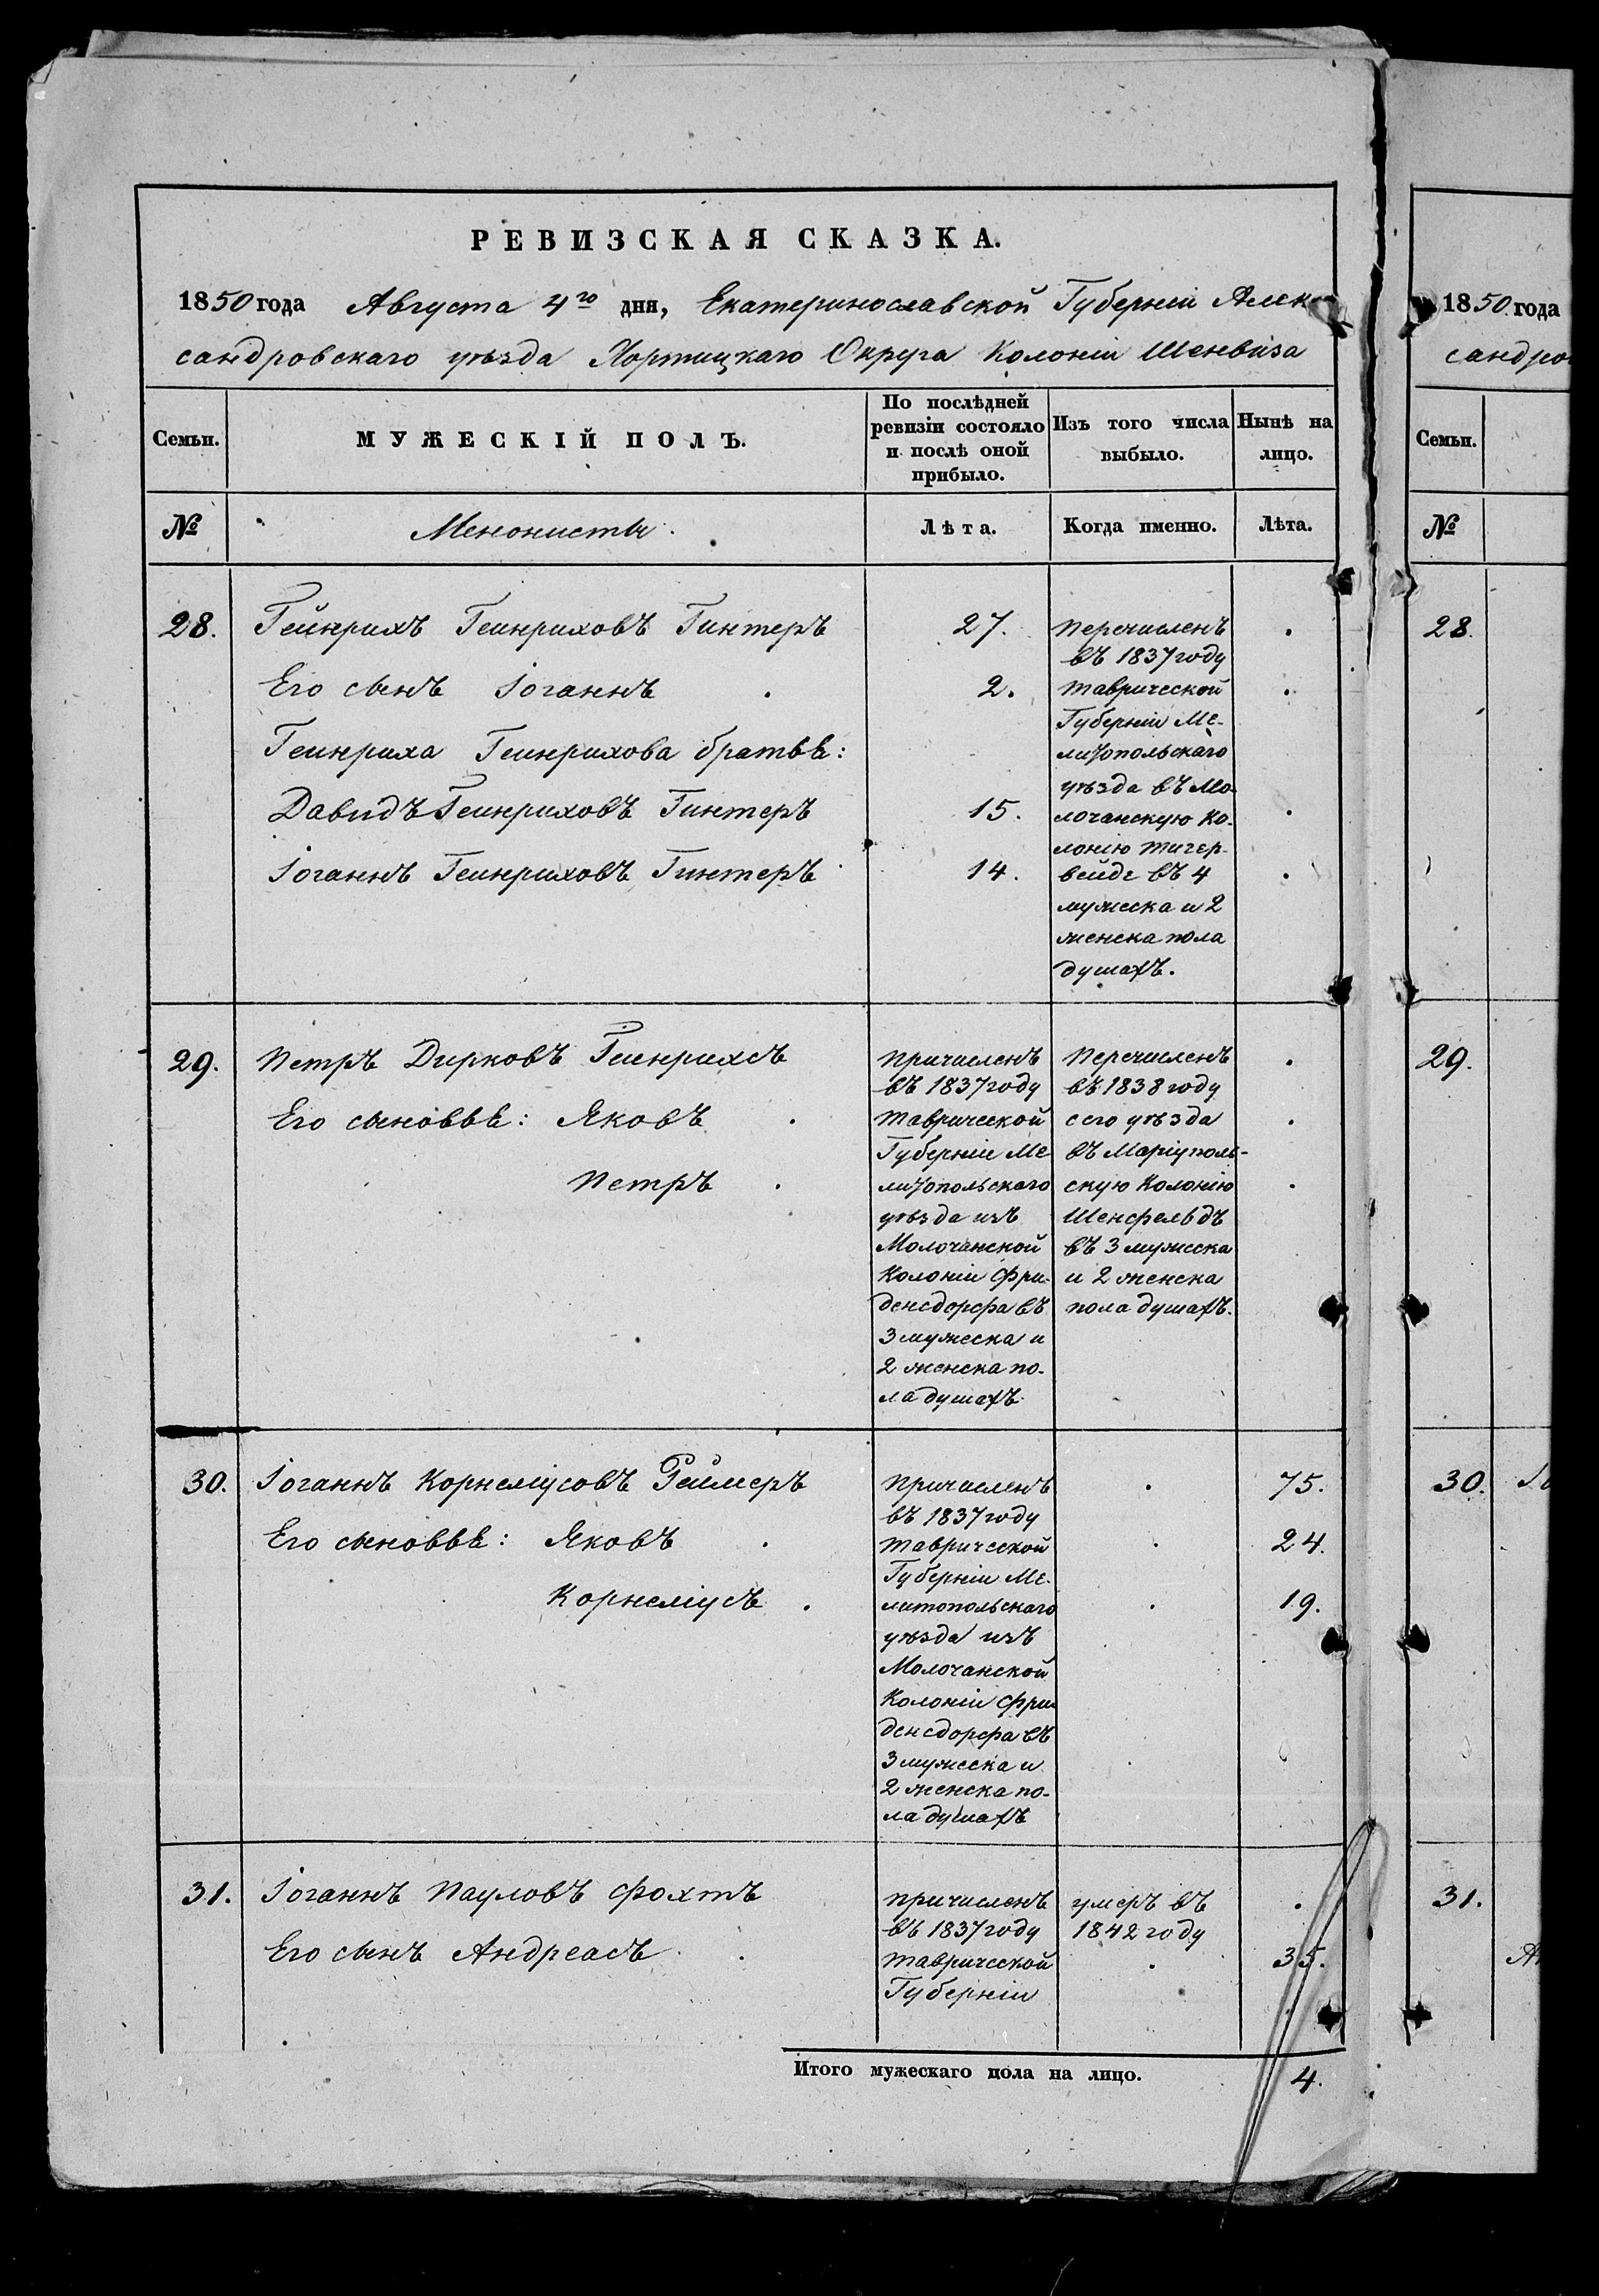 РЕВИЗСКАЯ СКАЗКА.
1850 года Августа 4го дня, Екатеринославской Губерніи Алек-
сандровскаго уѣзда Хортицкаго Округа Колоніи Шенвиза
Семьи.
МУЖЕСКІЙ ПОЛЪ.
По послѣдней
ревизіи состояло
и послѣ оной
прибыло.
Изъ того числа
выбыло.
Нынѣ на
лицо.
№
Менонисты.
Лѣта.
Когда именно.
Лѣта.
28. Гейнрихъ Геинриховъ Гинтеръ 27.
Его сынъ Іоганнъ 2.
Геинриха Геинрихова братья:
Давидъ Геинриховъ Гинтеръ 15.
Іоганнъ Геинриховъ Гинтеръ 14.
Перечисленъ
въ 1837 году
Таврической
Губерніи Ме-
литопольскаго
уѣзда въ Мо-
лочанскую Ко-
лонію Тигер-
вейде въ 4
мужеска и 2
женска пола
душахъ.
29. Петръ Дирковъ Геинрихсъ
Его сыновья: Яковъ
Петръ
Причисленъ
въ 1837 году
Таврической
Губерніи Ме-
литопольскаго
уѣзда изъ
Молочанской
Колоніи Фри-
денсдорфа въ
3 мужеска и
2 женска по-
ла душахъ.
Перечисленъ
въ 1838 году
сего уѣзда
въ Маріуполь-
скую Колонію
Шенфельдъ
въ 3 мужеска
и 2 женска
пола душахъ.
30. Іоганнъ Корнеліусовъ Реимеръ 75.
Его сыновья: Яковъ 24.
Корнеліусъ 19.
Причисленъ
въ 1837 году
Таврической
Губерніи Ме-
литопольскаго
уѣзда изъ
Молочанской
Колоніи Фри-
денсдорфа въ
3 мужеска и
2 женска по-
ла душахъ
31. Іоганнъ Пауловъ Фохтъ
Его сынъ Андреасъ 35.
Причисленъ
въ 1837 году
Таврической
Губерніи
умеръ въ
1842 году
Итого мужескаго пола на лицо. 4.
1850 года
сандро
Семьи.
№
28.
29.
30.
31.